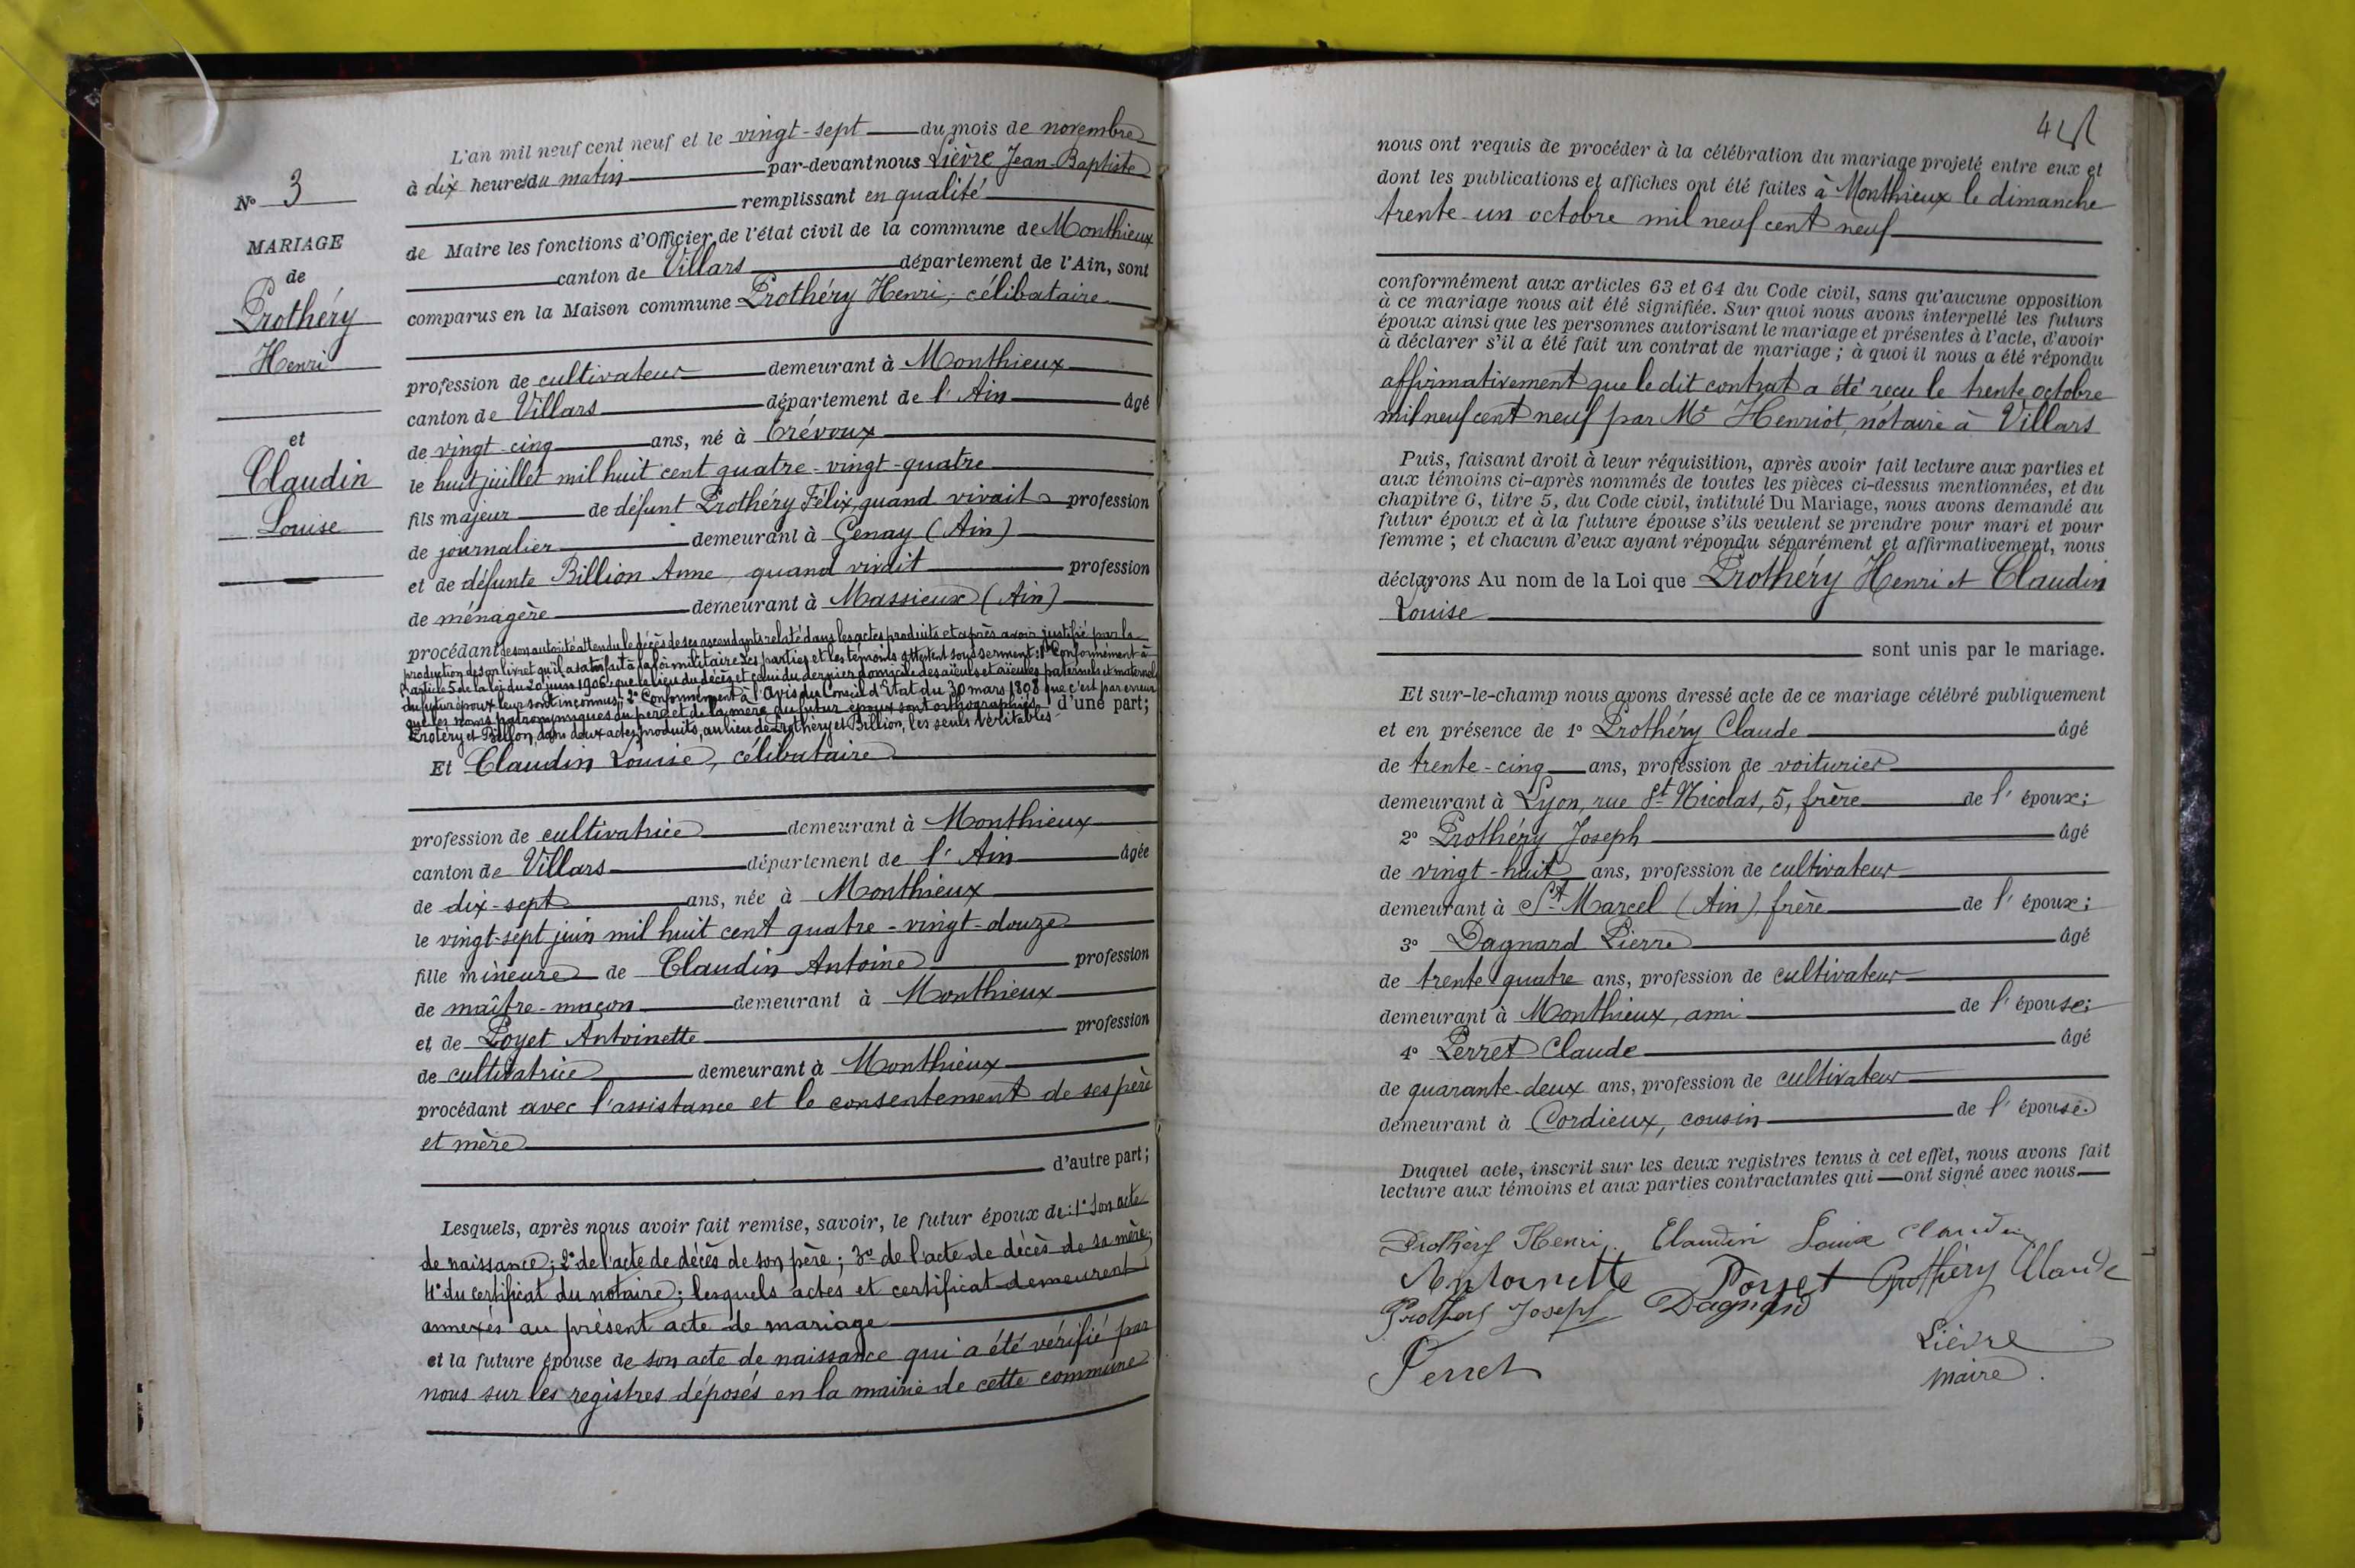 N° 3
MARIAGE
de
Prothéry
Henri
et
Claudin
Louise
L'an mil neuf cent neuf et le vingt-sept du mois de novembre
à dix heures du matin par-devant nous Lièvre Jean-Baptiste
remplissant en qualité
de Maire les fonctions d'Officier de l'état civil de la commune de Monthieux
canton de Villars département de l'Ain, sont
comparus en la Maison commune Prothéry Henri, célibataire
profession de cultivateur demeurant à Monthieux
canton de Villars département de l'Ain âgé
de vingt-cinq ans, né à Trévoux
le huit juillet mil huit cent quatre-vingt-quatre
fils majeur de défunt Prothéry Félix, quand vivait profession
de journalier demeurant à Genay (Ain)
et de défunte Billion Anne, quand vivait profession
de ménagère demeurant à Massieux (Ain)
procédant de son autorité attendu le décès de ses ascendants relaté dans les actes produits et après avoir justifié par la
production de son livret qu'il a satisfait à la loi militaire. Les parties et les témoins attestent sous serment: 1° Conformément à
l'article 5 de la loi du 20 juin 1906, que le lieu du décès et celui du dernier domicile des aïeuls et aïeules paternels et maternels
du futur époux leur sont inconnus; 2° Conformément à l'Avis du Conseil d'Etat du 30 mars 1808 que c'est par erreur
que les noms patronymiques du père et de la mère du futur époux sont orthographiés d'une part;
Protéry et Billon, dans deux actes produits, au lieu de Prothéry et Billion, les seuls véritables
Et Claudin Louise, célibataire
profession de cultivatrice demeurant à Monthieux
canton de Villars département de l'Ain âgée
de dix-sept ans, née à Monthieux
le vingt-sept juin mil huit cent quatre-vingt-douze
fille mineure de Claudin Antoine profession
de maître-maçon demeurant à Monthieux
et de Poyet Antoinette profession
de cultivatrice demeurant à Monthieux
procédant avec l'assistance et le consentement de ses père
et mère
d'autre part;
Lesquels, après nous avoir fait remise, savoir, le futur époux de: 1° Son acte
de naissance; 2° de l'acte de décès de son père; 3° de l'acte de décès de sa mère;
4° du certificat du notaire; lesquels actes et certificat demeurent
annexés au présent acte de mariage
et la future épouse de son acte de naissance qui a été vérifié par
nous sur les registres déposés en la mairie de cette commune
nous ont requis de procéder à la célébration du mariage projeté entre eux et
dont les publications et affiches ont été faites à Monthieux le dimanche
trente-un octobre mil neuf cent neuf
conformément aux articles 63 et 64 du Code civil, sans qu'aucune opposition
à ce mariage nous ait été signifiée. Sur quoi nous avons interpellé les futurs
époux ainsi que les personnes autorisant le mariage et présentes à l'acte, d'avoir
à déclarer s'il a été fait un contrat de mariage; à quoi il nous a été répondu
affirmativement que le dit contrat a été reçu le trente octobre
mil neuf cent neuf par Me Henriot, notaire à Villars
Puis, faisant droit à leur réquisition, après avoir fait lecture aux parties et
aux témoins ci-après nommés de toutes les pièces ci-dessus mentionnées, et du
chapitre 6, titre 5, du Code civil, intitulé Du Mariage, nous avons demandé au
futur époux et à la future épouse s'ils veulent se prendre pour mari et pour
femme; et chacun d'eux ayant répondu séparément et affirmativement, nous
déclarons Au nom de la Loi que Prothéry Henri et Claudin
Louise
sont unis par le mariage.
Et sur-le-champ nous avons dressé acte de ce mariage célébré publiquement
et en présence de 1° Prothéry Claude âgé
de trente-cinq ans, profession de voiturier
demeurant à Lyon, rue St-Nicolas, 5, frère de l'époux;
2° Prothéry Joseph âgé
de vingt-huit ans, profession de cultivateur
demeurant à St-Marcel (Ain), frère de l'époux;
3° Dagnard Pierre âgé
de trente quatre ans, profession de cultivateur
demeurant à Monthieux, ami de l'épouse;
4° Perret Claude âgé
de quarante-deux ans, profession de cultivateur
demeurant à Cordieux, cousin de l'épouse.
Duquel acte, inscrit sur les deux registres tenus à cet effet, nous avons fait
lecture aux témoins et aux parties contractantes qui ont signé avec nous
Prothéry Henri Claudin Louise Claudin
Antoinette Poyet Prothéry Claude
Prothéry Joseph Dagnard
Lièvre
Perret maire.